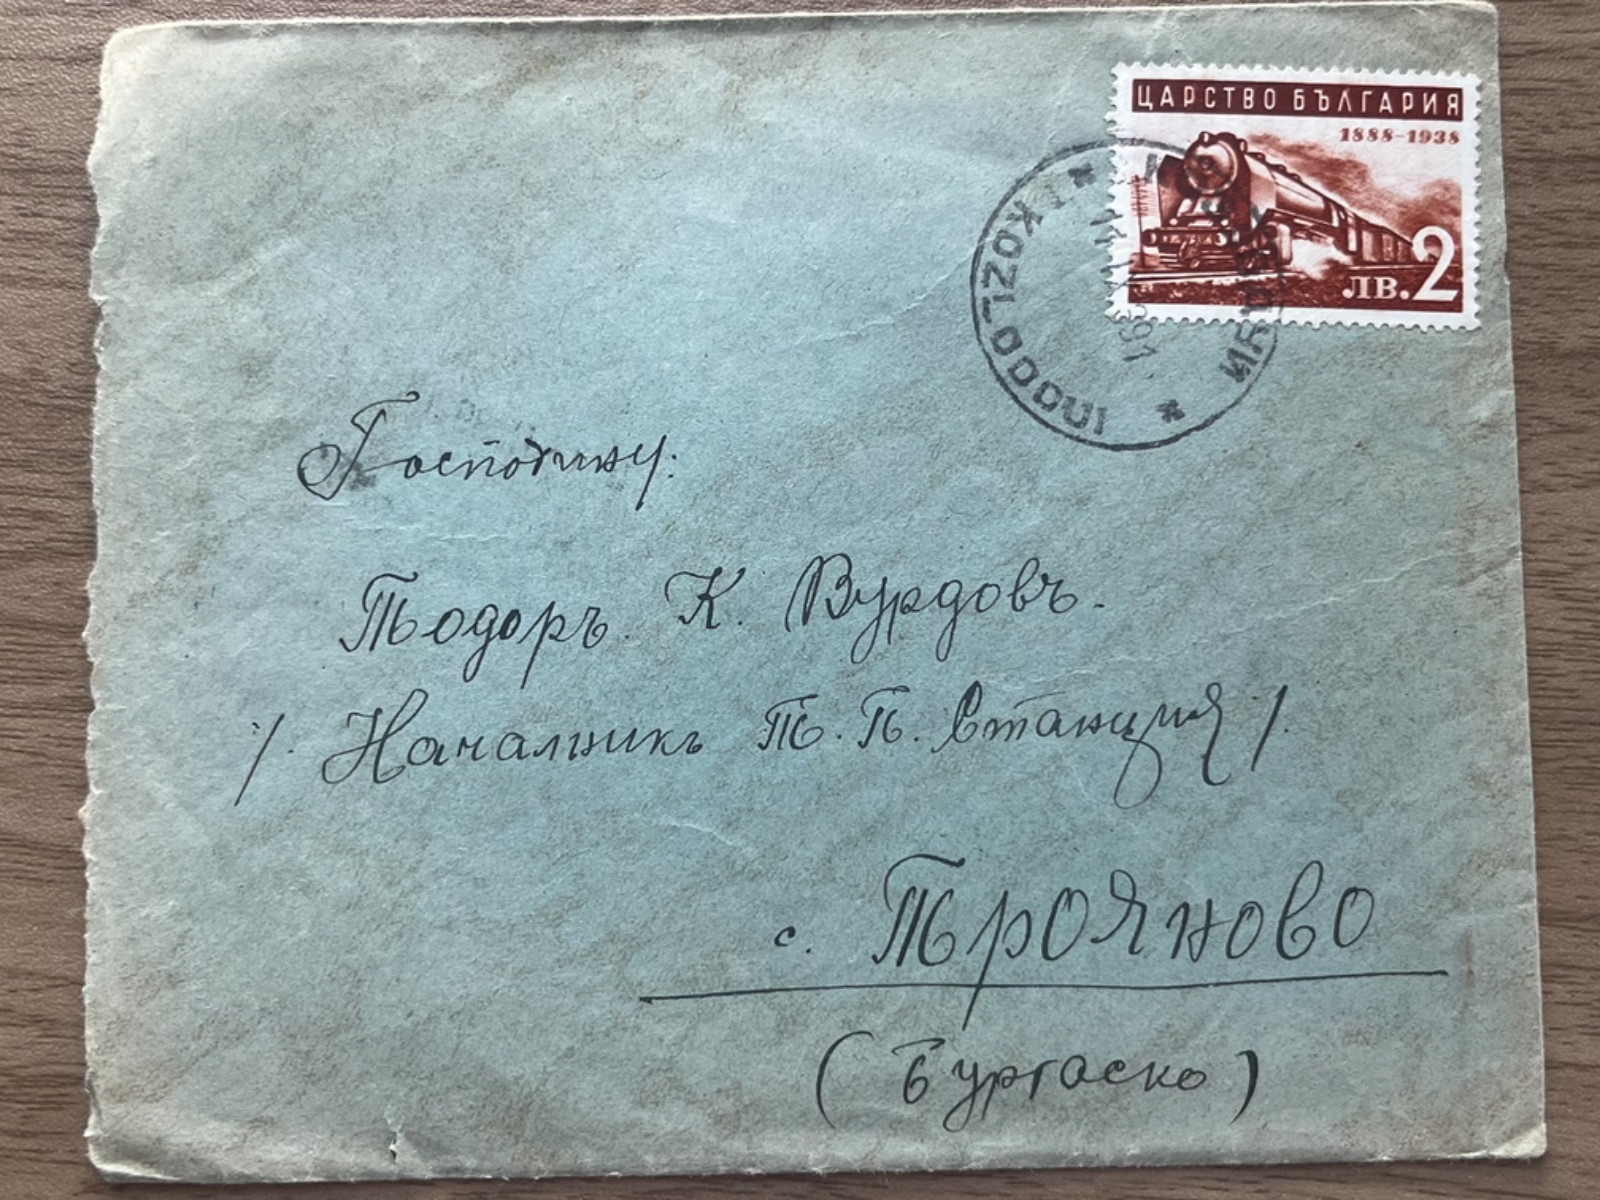 ЦАРСТВО БЪЛГАРИЯ
1888-1938
лв. 2
KOZL-DODUI
Господину:
Тодоръ. К. Вурдовъ.
/. Началникъ Т. П. Станция /.
с. Трояново
(Бургаско)